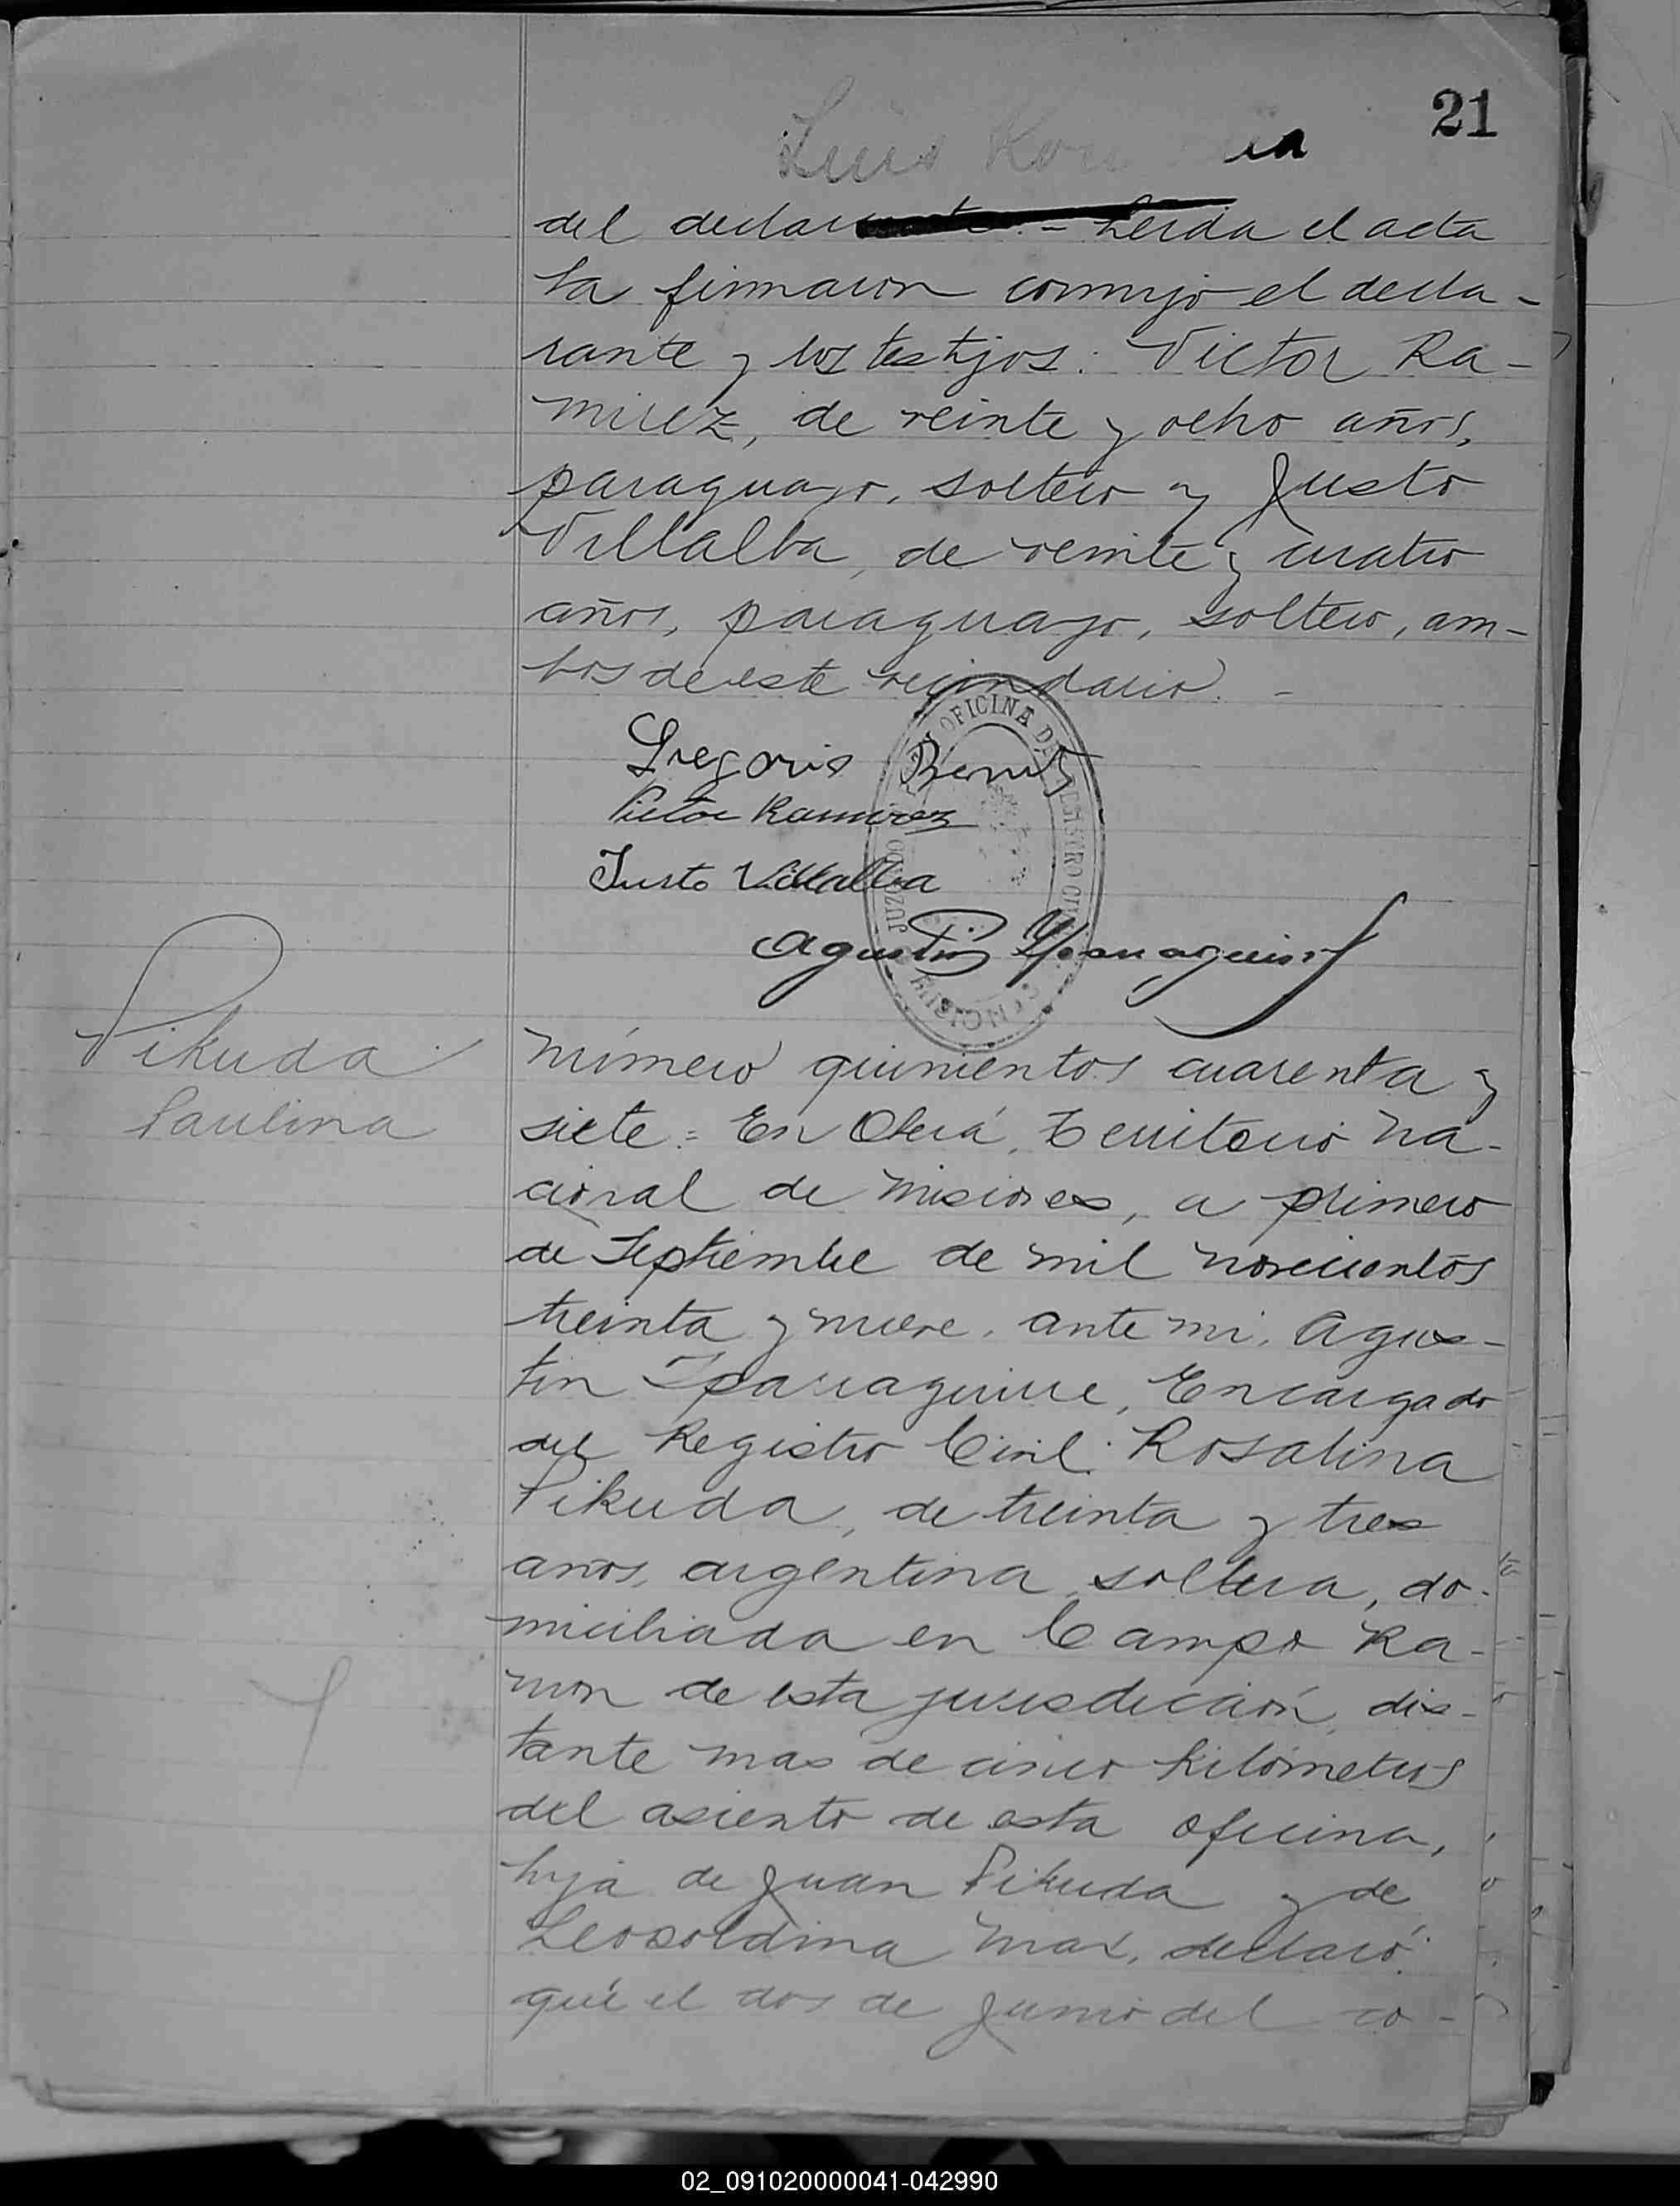 21
Luis
del declarante. - Leida el acta
la firmaron conmigo el decla-
rante y los testigos: Victor Ra-
mirez, de veinte y ocho años,
paraguayo, soltero y Justo
Villalba, de veinte y cuatro
años, paraguayo, soltero, am-
bos de este vecindario. -
Gregorio Benitez
Victor Ramirez
Justo Villalba
Agustin Yparraguirre
OFICINA DEL REGISTRO CIVIL
JUZGADO
Pikuda
Paulina
Número quinientos cuarenta y
siete = En Oberá, Territorio Na-
cional de Misiones, a primero
de Septiembre de mil novecientos
treinta y nueve, ante mi, Agus-
tin Yparraguirre, Encargado
del Registro Civil: Rosalina
Pikuda, de treinta y tres
años, argentina, soltera, do-
miciliada en Campo Ra-
mon de esta jurisdiccion, dis-
tante mas de cinco kilómetros
del asiento de esta oficina,
hija de Juan Pikuda y de
Leopoldina Max, declaró:
qué el dos de Junio del co-
02_091020000041-042990